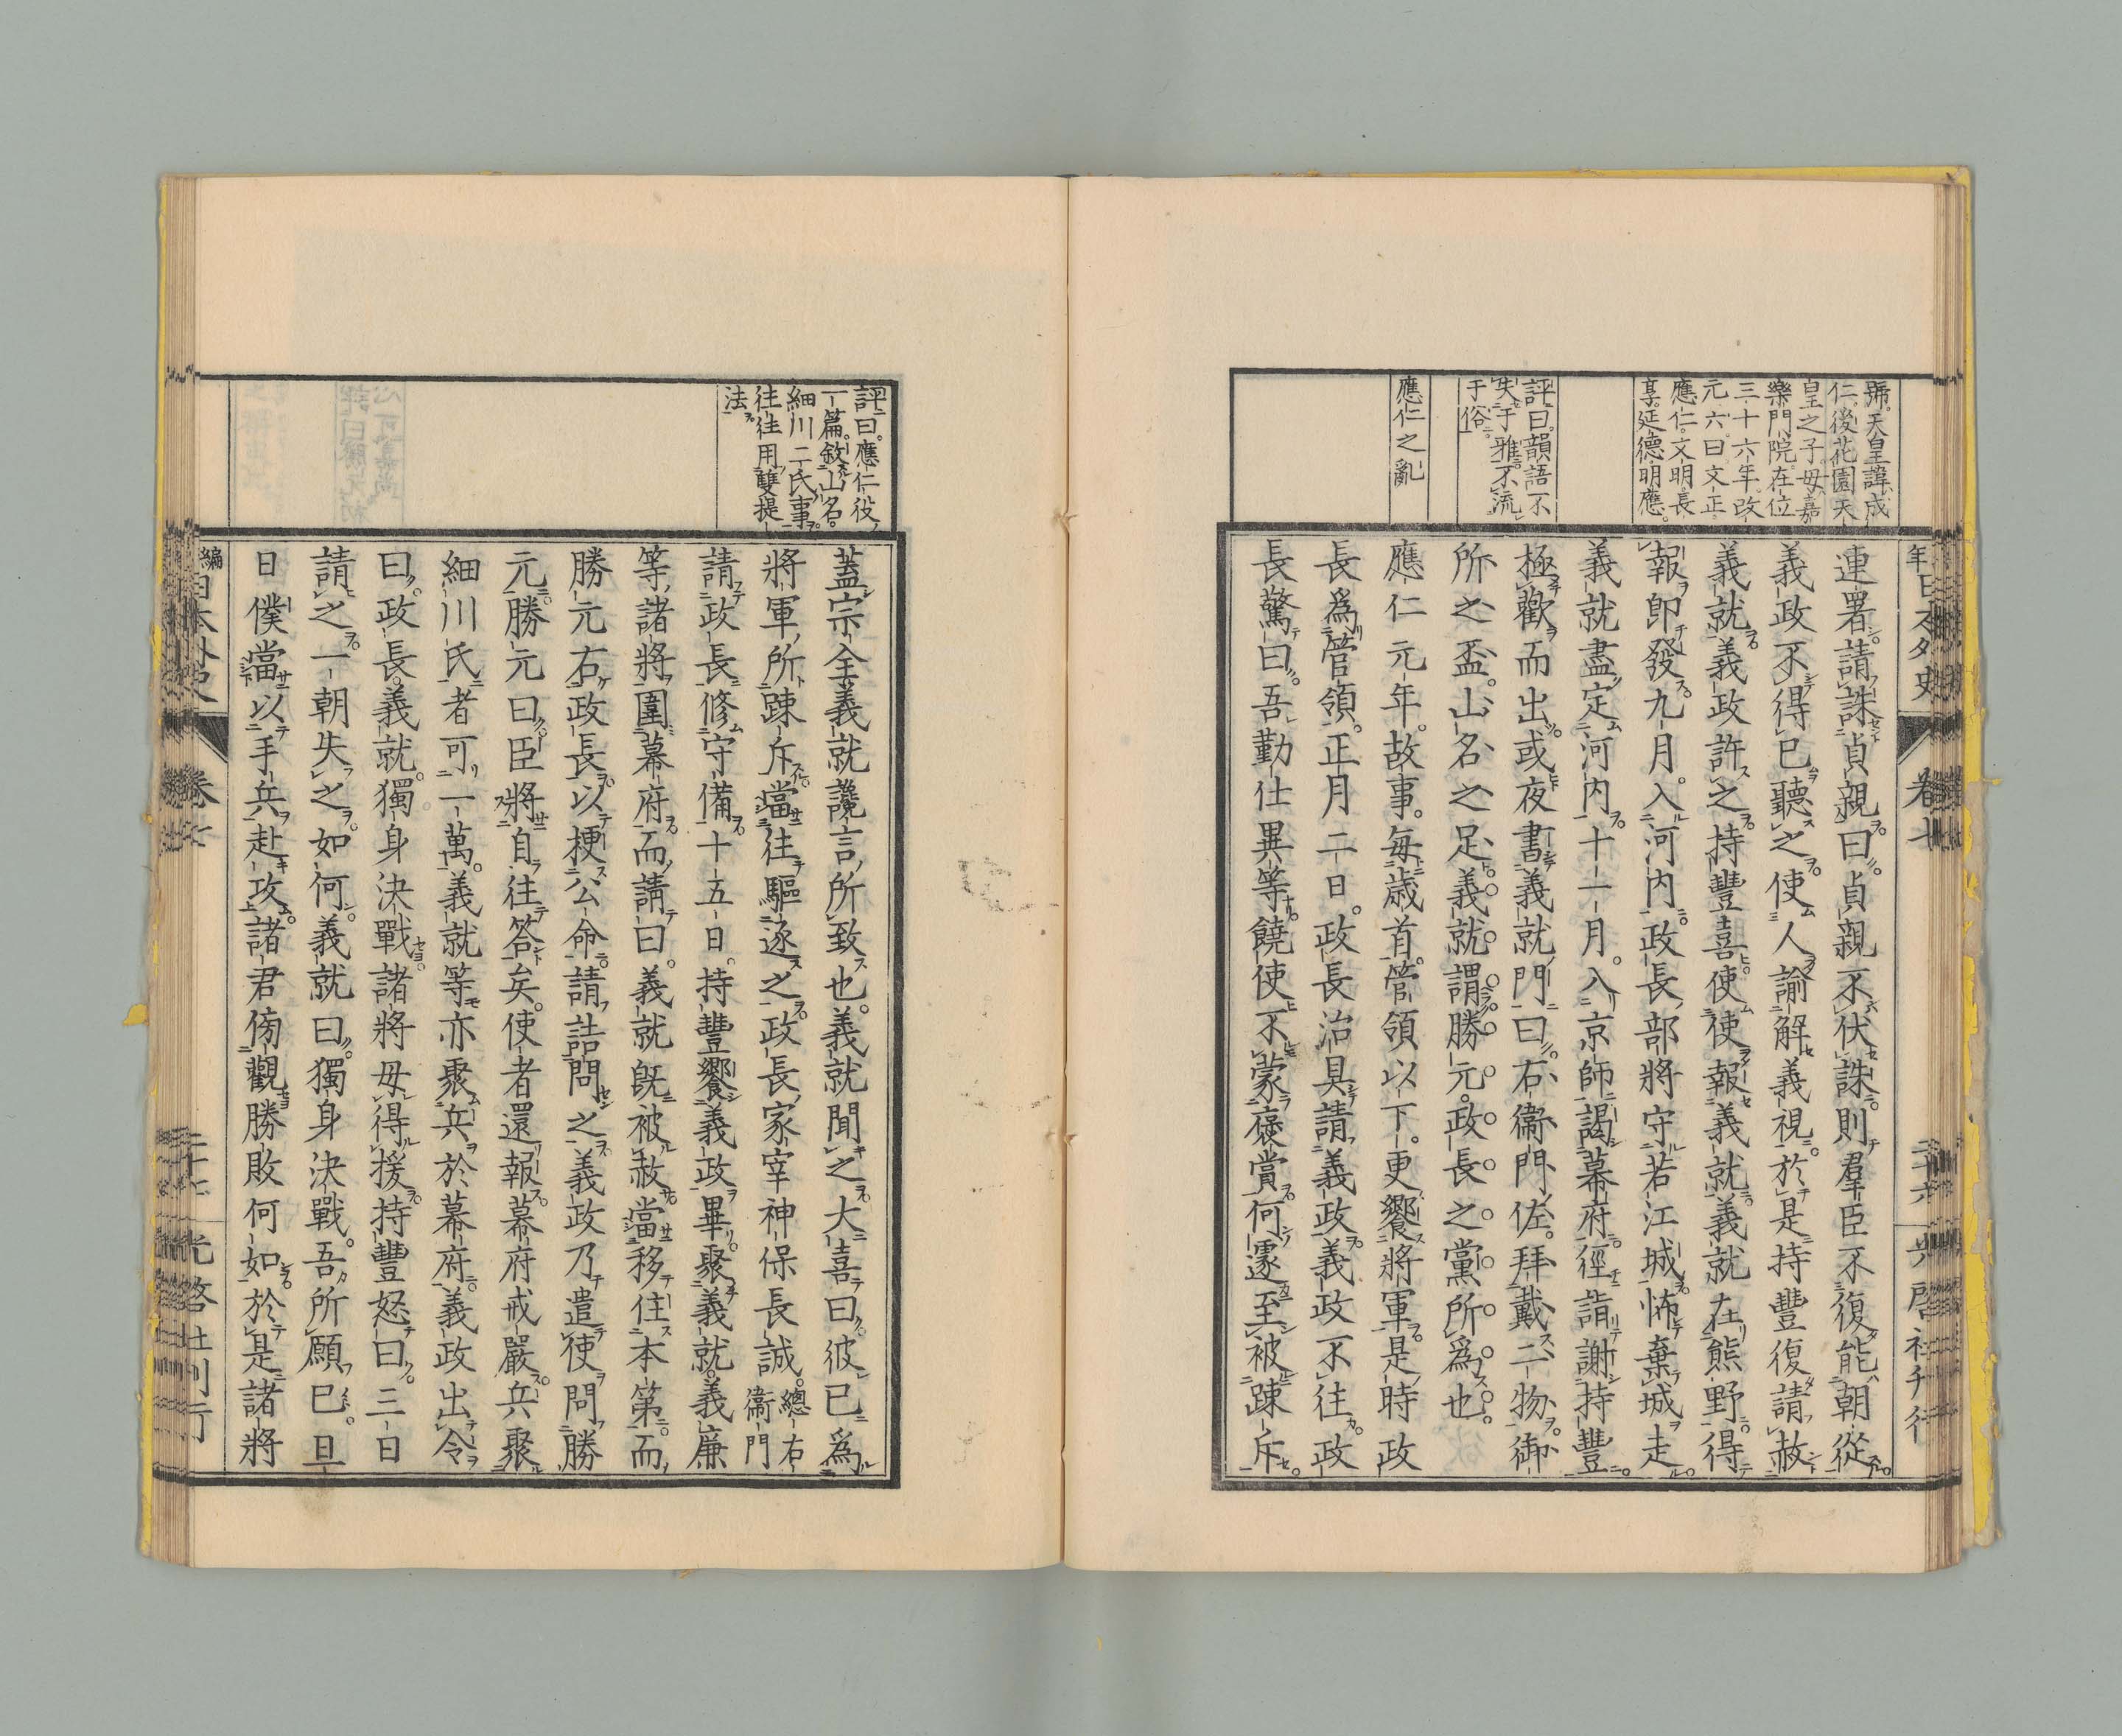 號。天皇諱成
仁。後花園天
皇之子。母嘉
樂門院。在位
三十六年。改
元六。曰文正
應仁。文明。長
享。延德。明應。
評曰。韻語不
失于雅。不流
于俗。
應仁之亂
連署請誅貞親曰。貞親不伏誅。則羣臣不復能朝從。
義政不得已聽之。使人諭解義視。於是持豐復請赦
義就。義政許之。持豐喜。使使報義就。義就在熊野。得
報即發。九月。入河内。政長部將守若江城。怖棄城走。
義就盡定河内。十一月。入京師。謁幕府。徑詣謝持豐。
極歡而出。或夜書義就門曰。右衞門佐。拜戴二物。御
所之盃。山名之足。義就謂勝元。政長之黨所爲也。
應仁元年。故事。每歳首。管領以下。更饗將軍。是時政
長爲管領。正月二日。政長治具請義政。義政不往。政
長驚曰。吾勤仕異等。饒使不蒙褒賞。何遽至被踈斥。
年日本外史 卷七 二十六 光啓社刊行
評曰。應仁役
一篇。敘山名。
細川二氏事。
往往用雙提
法。
蓋宗全義就讒言所致也。義就聞之大喜曰。彼已爲
將軍所踈斥。當往驅逐之。政長家宰神保長誠。總右衞門
請政長修守備。十五日。持豐饗義政畢。聚義就。義廉
等諸將。圍幕府。而請曰。義就既被赦。當移住本第。而
勝元右政長。以梗公命。請詰問之。義政乃遣使問勝
元。勝元曰。臣將自往答矣。使者還報。幕府戒嚴。兵聚
細川氏者可一萬。義就等亦聚兵於幕府。義政出令
曰。政長。義就。獨身決戰。諸將毋得援。持豐怒曰。三日
請之。一朝失之。如何。義就曰。獨身決戰。吾所願已。旦
日僕當以手兵赴攻。諸君傍觀勝敗何如。於是諸將
編日本外史 卷七 二十七 光啓社刊行